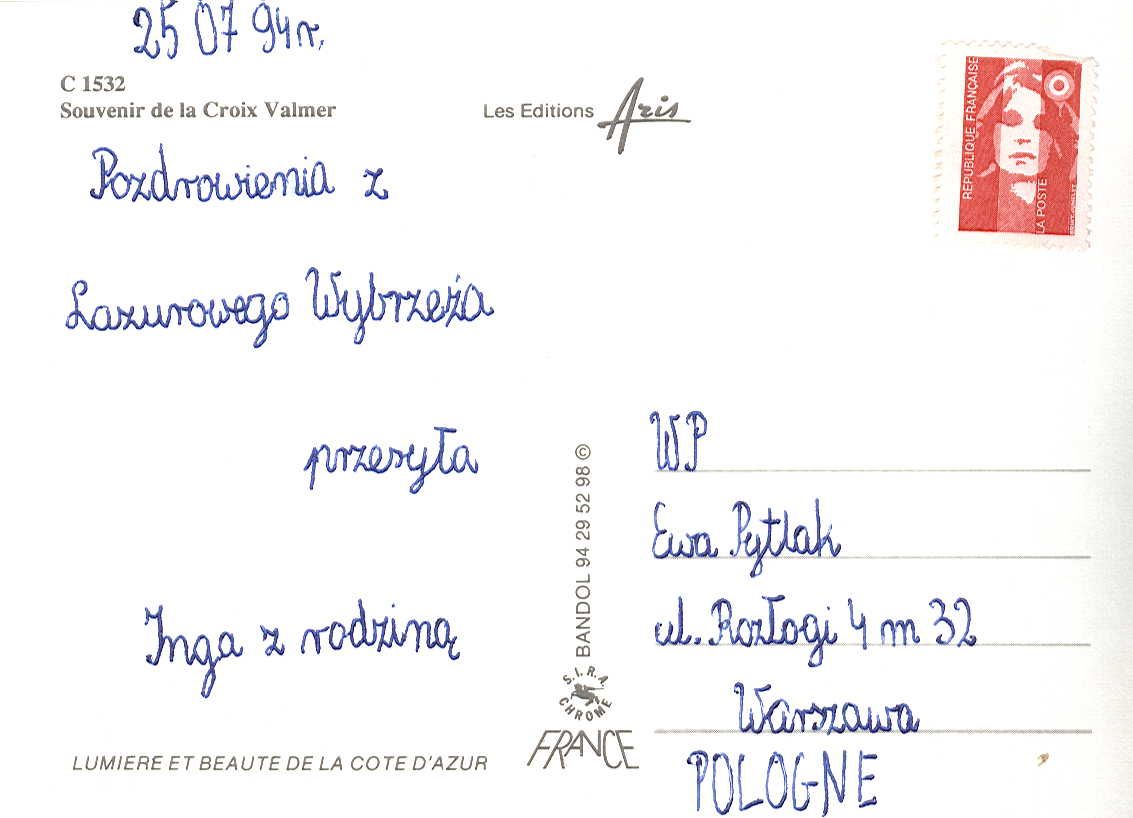 25 07 94r.
C 1532
Souvenir de la Croix Valmer
Les Editions Aris
RÉPUBLIQUE FRANÇAISE
LA POSTE
Pozdrowienia z
Lazurowego Wybrzeża
przesyła
Inga z rodziną
LUMIERE ET BEAUTE DE LA COTE D'AZUR
BANDOL 94 29 52 98 ©
S.I.R.A.
CHROME
FRANCE
WP
Ewa Pytlak
ul. Rozłogi 4 m 32
Warszawa
POLOGNE